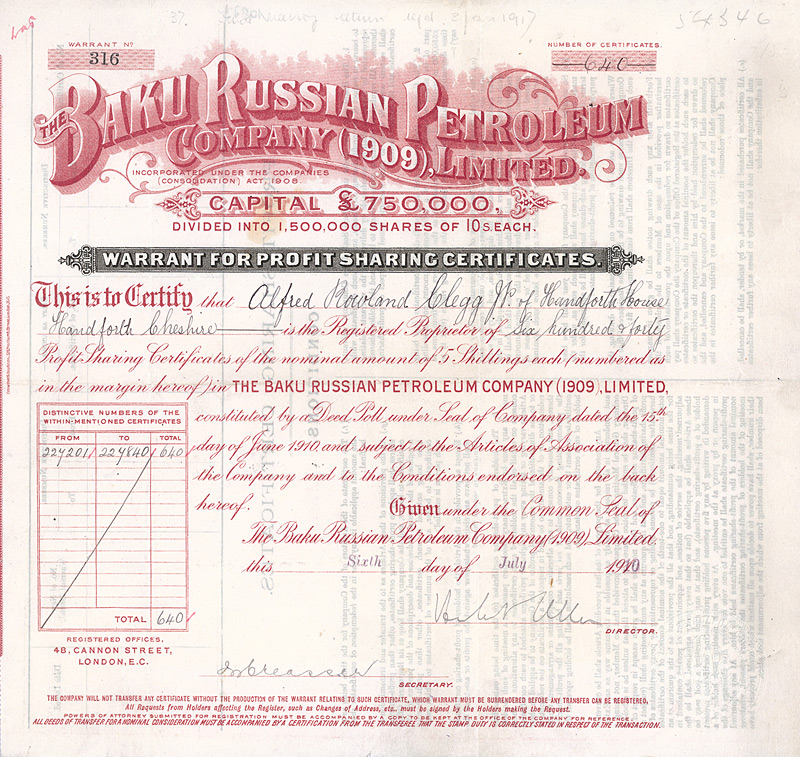 return
1917
WARRANT Nº
316
NUMBER OF CERTIFICATES.
640
THE BAKU RUSSIAN PETROLEUM
COMPANY (1909), LIMITED.
INCORPORATED UNDER THE COMPANIES
(CONSOLIDATION) ACT, 1908.
CAPITAL £750,000,
DIVIDED INTO 1,500,000 SHARES OF 10s. EACH.
WARRANT FOR PROFIT SHARING CERTIFICATES.
This is to Certify that Alfred Rowland Clegg JP. of Handforth House
Handforth Cheshire is the Registered Proprietor of Six hundred & forty
Profit Sharing Certificates of the nominal amount of 5 Shillings each (numbered as
in the margin hereof) in THE BAKU RUSSIAN PETROLEUM COMPANY (1909), LIMITED,
constituted by a Deed Poll under Seal of Company dated the 15th
day of June 1910, and subject to the Articles of Association of
the Company and to the Conditions endorsed on the back
hereof.
DISTINCTIVE NUMBERS OF THE
WITHIN-MENTIONED CERTIFICATES
FROM TO TOTAL
227201 227840 640
TOTAL 640
Given under the Common Seal of
The Baku Russian Petroleum Company (1909), Limited.
this Sixth day of July 1910
DIRECTOR.
REGISTERED OFFICES,
48, CANNON STREET,
LONDON, E.C.
SECRETARY.
THE COMPANY WILL NOT TRANSFER ANY CERTIFICATE WITHOUT THE PRODUCTION OF THE WARRANT RELATING TO SUCH CERTIFICATE, WHICH WARRANT MUST BE SURRENDERED BEFORE ANY TRANSFER CAN BE REGISTERED,
All Requests from Holders affecting the Register, such as Changes of Address, etc., must be signed by the Holders making the Request.
POWERS OF ATTORNEY SUBMITTED FOR REGISTRATION MUST BE ACCOMPANIED BY A COPY TO BE KEPT AT THE OFFICE OF THE COMPANY FOR REFERENCE.
ALL DEEDS OF TRANSFER FOR A NOMINAL CONSIDERATION MUST BE ACCOMPANIED BY A CERTIFICATION FROM THE TRANSFEREE THAT THE STAMP DUTY IS CORRECTLY STATED IN RESPECT OF THE TRANSACTION.